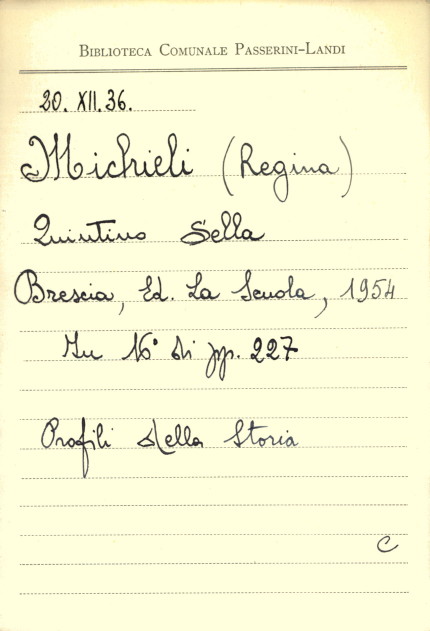 BIBLIOTECA COMUNALE PASSERINI-LANDI
20. XII. 36.
Michieli (Regina)
Quintino Sella
Brescia, Ed. La Scuola, 1954
In 16° di pp. 227
Profili della Storia
C